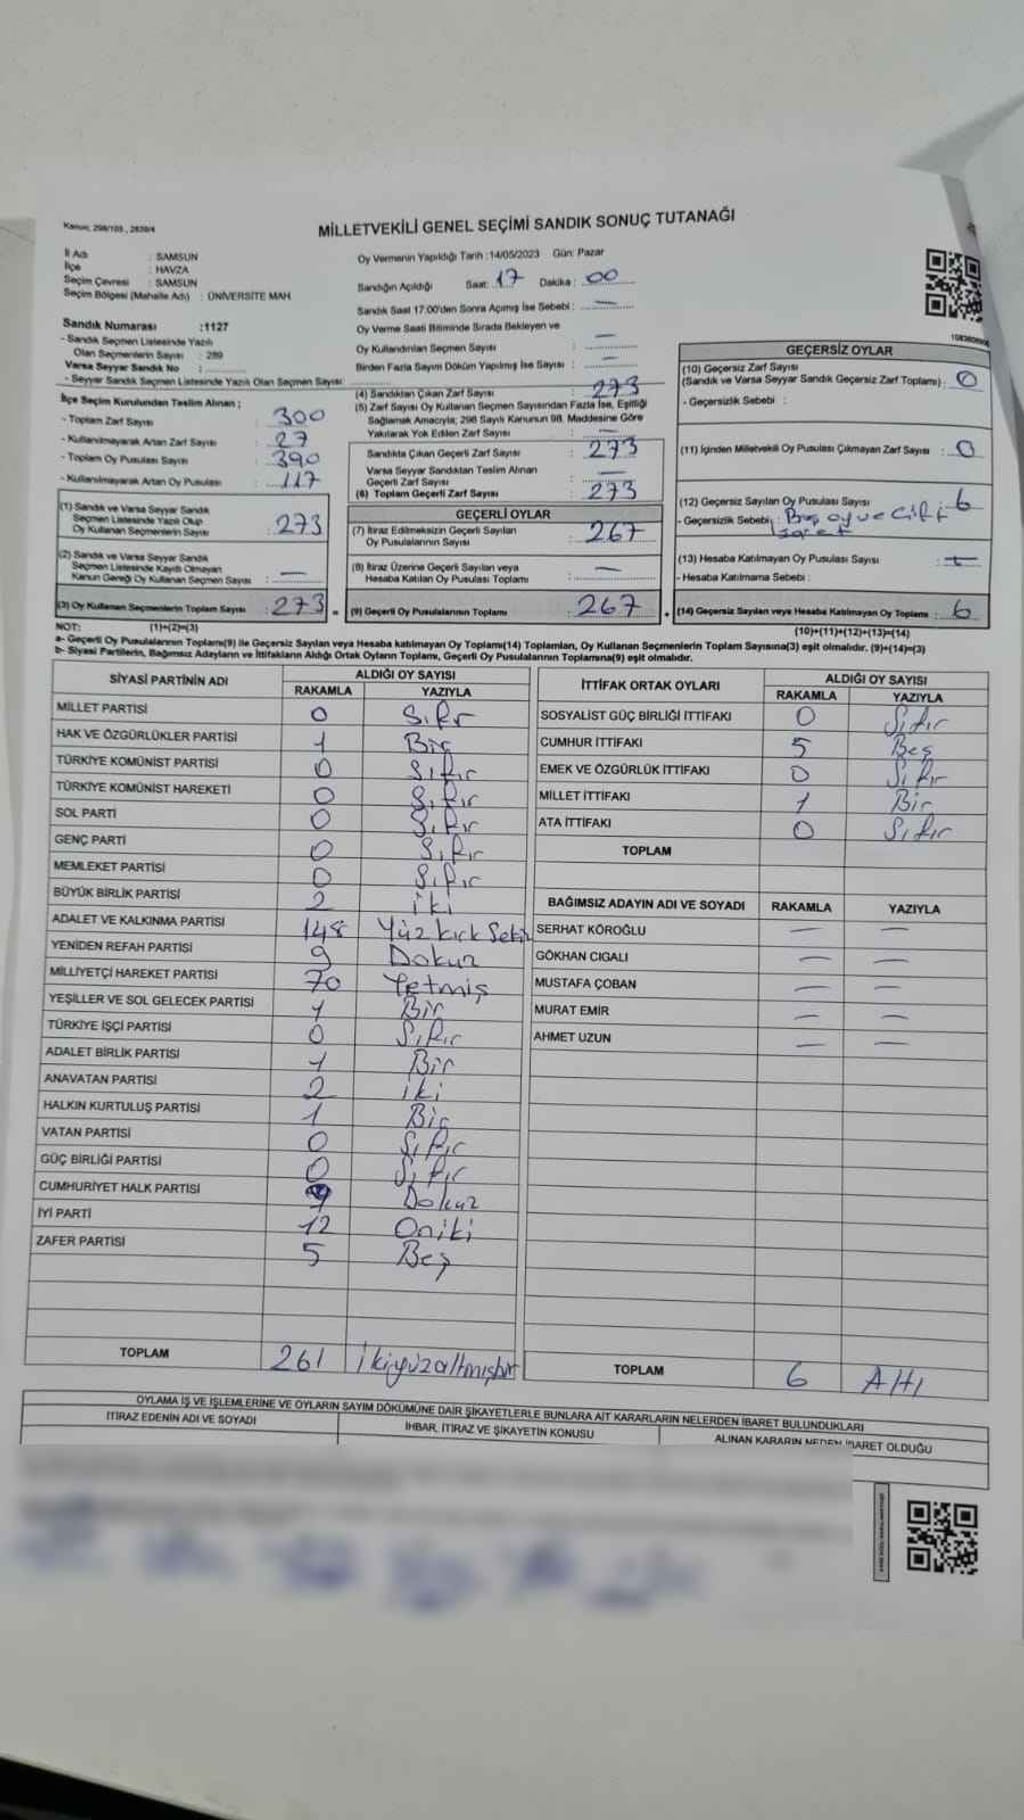 Kanun: 298/105, 2839/4
MİLLETVEKİLİ GENEL SEÇİMİ SANDIK SONUÇ TUTANAĞI
İl Adı : SAMSUN
İlçe : HAVZA
Seçim Çevresi : SAMSUN
Seçim Bölgesi (Mahalle Adı) : ÜNİVERSİTE MAH
Oy Vermenin Yapıldığı Tarih :14/05/2023 Gün: Pazar
Sandığın Açıldığı Saat: 17 Dakika : 00
Sandık Saat 17:00'den Sonra Açılmış İse Sebebi : —
Oy Verme Saati Bitiminde Sırada Bekleyen ve
Oy Kullandırılan Seçmen Sayısı : —
Birden Fazla Sayım Döküm Yapılmış İse Sayısı : —
Sandık Numarası :1127
- Sandık Seçmen Listesinde Yazılı
Olan Seçmenlerin Sayısı : 289
Varsa Seyyar Sandık No :
- Seyyar Sandık Seçmen Listesinde Yazılı Olan Seçmen Sayısı :
İlçe Seçim Kurulundan Teslim Alınan ;
- Toplam Zarf Sayısı : 300
- Kullanılmayarak Artan Zarf Sayısı : 27
- Toplam Oy Pusulası Sayısı : 390
- Kullanılmayarak Artan Oy Pusulası : 117
(1) Sandık ve Varsa Seyyar Sandık
Seçmen Listesinde Yazılı Olup
Oy Kullanan Seçmenlerin Sayısı : 273
(2) Sandık ve Varsa Seyyar Sandık
Seçmen Listesinde Kayıtlı Olmayan
Kanun Gereği Oy Kullanan Seçmen Sayısı : —
(3) Oy Kullanan Seçmenlerin Toplam Sayısı : 273 =
(4) Sandıktan Çıkan Zarf Sayısı : 273
(5) Zarf Sayısı Oy Kullanan Seçmen Sayısından Fazla İse, Eşitliği
Sağlamak Amacıyla; 298 Sayılı Kanunun 98. Maddesine Göre
Yakılarak Yok Edilen Zarf Sayısı : —
Sandıkta Çıkan Geçerli Zarf Sayısı : 273
Varsa Seyyar Sandıktan Teslim Alınan
Geçerli Zarf Sayısı : —
(6) Toplam Geçerli Zarf Sayısı : 273
GEÇERLİ OYLAR
(7) İtiraz Edilmeksizin Geçerli Sayılan
Oy Pusulalarının Sayısı : 267
(8) İtiraz Üzerine Geçerli Sayılan veya
Hesaba Katılan Oy Pusulası Toplamı : —
(9) Geçerli Oy Pusulalarının Toplamı : 267 +
GEÇERSİZ OYLAR
(10) Geçersiz Zarf Sayısı
(Sandık ve Varsa Seyyar Sandık Geçersiz Zarf Toplamı) : 0
- Geçersizlik Sebebi :
(11) İçinden Milletvekili Oy Pusulası Çıkmayan Zarf Sayısı : 0
(12) Geçersiz Sayılan Oy Pusulası Sayısı : 6
- Geçersizlik Sebebi : Boş oy ve Çift
işaret
(13) Hesaba Katılmayan Oy Pusulası Sayısı : —
- Hesaba Katılmama Sebebi :
(14) Geçersiz Sayılan veya Hesaba Katılmayan Oy Toplamı : 6
NOT: (1)+(2)=(3)
(10)+(11)+(12)+(13)=(14)
a- Geçerli Oy Pusulalarının Toplamı(9) ile Geçersiz Sayılan veya Hesaba katılmayan Oy Toplamı(14) Toplamları, Oy Kullanan Seçmenlerin Toplam Sayısına(3) eşit olmalıdır. (9)+(14)=(3)
b- Siyasi Partilerin, Bağımsız Adayların ve İttifakların Aldığı Ortak Oyların Toplamı, Geçerli Oy Pusulalarının Toplamına(9) eşit olmalıdır.
SİYASİ PARTİNİN ADI ALDIĞI OY SAYISI
RAKAMLA YAZIYLA
MİLLET PARTİSİ 0 Sıfır
HAK VE ÖZGÜRLÜKLER PARTİSİ 1 Bir
TÜRKİYE KOMÜNİST PARTİSİ 0 Sıfır
TÜRKİYE KOMÜNİST HAREKETİ 0 Sıfır
SOL PARTİ 0 Sıfır
GENÇ PARTİ 0 Sıfır
MEMLEKET PARTİSİ 0 Sıfır
BÜYÜK BİRLİK PARTİSİ 2 iki
ADALET VE KALKINMA PARTİSİ 148 Yüz kırk Seki
YENİDEN REFAH PARTİSİ 9 Dokuz
MİLLİYETÇİ HAREKET PARTİSİ 70 Yetmiş
YEŞİLLER VE SOL GELECEK PARTİSİ 1 Bir
TÜRKİYE İŞÇİ PARTİSİ 0 Sıfır
ADALET BİRLİK PARTİSİ 1 Bir
ANAVATAN PARTİSİ 2 iki
HALKIN KURTULUŞ PARTİSİ 1 Bir
VATAN PARTİSİ 0 Sıfır
GÜÇ BİRLİĞİ PARTİSİ 0 Sıfır
CUMHURİYET HALK PARTİSİ 9 Dokuz
İYİ PARTİ 12 Oniki
ZAFER PARTİSİ 5 Beş
TOPLAM 261 ikiyüzaltmışbir
İTTİFAK ORTAK OYLARI ALDIĞI OY SAYISI
RAKAMLA YAZIYLA
SOSYALİST GÜÇ BİRLİĞİ İTTİFAKI 0 Sıfır
CUMHUR İTTİFAKI 5 Beş
EMEK VE ÖZGÜRLÜK İTTİFAKI 0 Sıfır
MİLLET İTTİFAKI 1 Bir
ATA İTTİFAKI 0 Sıfır
TOPLAM
BAĞIMSIZ ADAYIN ADI VE SOYADI RAKAMLA YAZIYLA
SERHAT KÖROĞLU — —
GÖKHAN CIGALI — —
MUSTAFA ÇOBAN — —
MURAT EMİR — —
AHMET UZUN — —
TOPLAM 6 Altı
OYLAMA İŞ VE İŞLEMLERİNE VE OYLARIN SAYIM DÖKÜMÜNE DAİR ŞİKAYETLERLE BUNLARA AİT KARARLARIN NELERDEN İBARET BULUNDUKLARI
İTİRAZ EDENİN ADI VE SOYADI İHBAR, İTİRAZ VE ŞİKAYETİN KONUSU ALINAN KARARIN NEDEN İBARET OLDUĞU